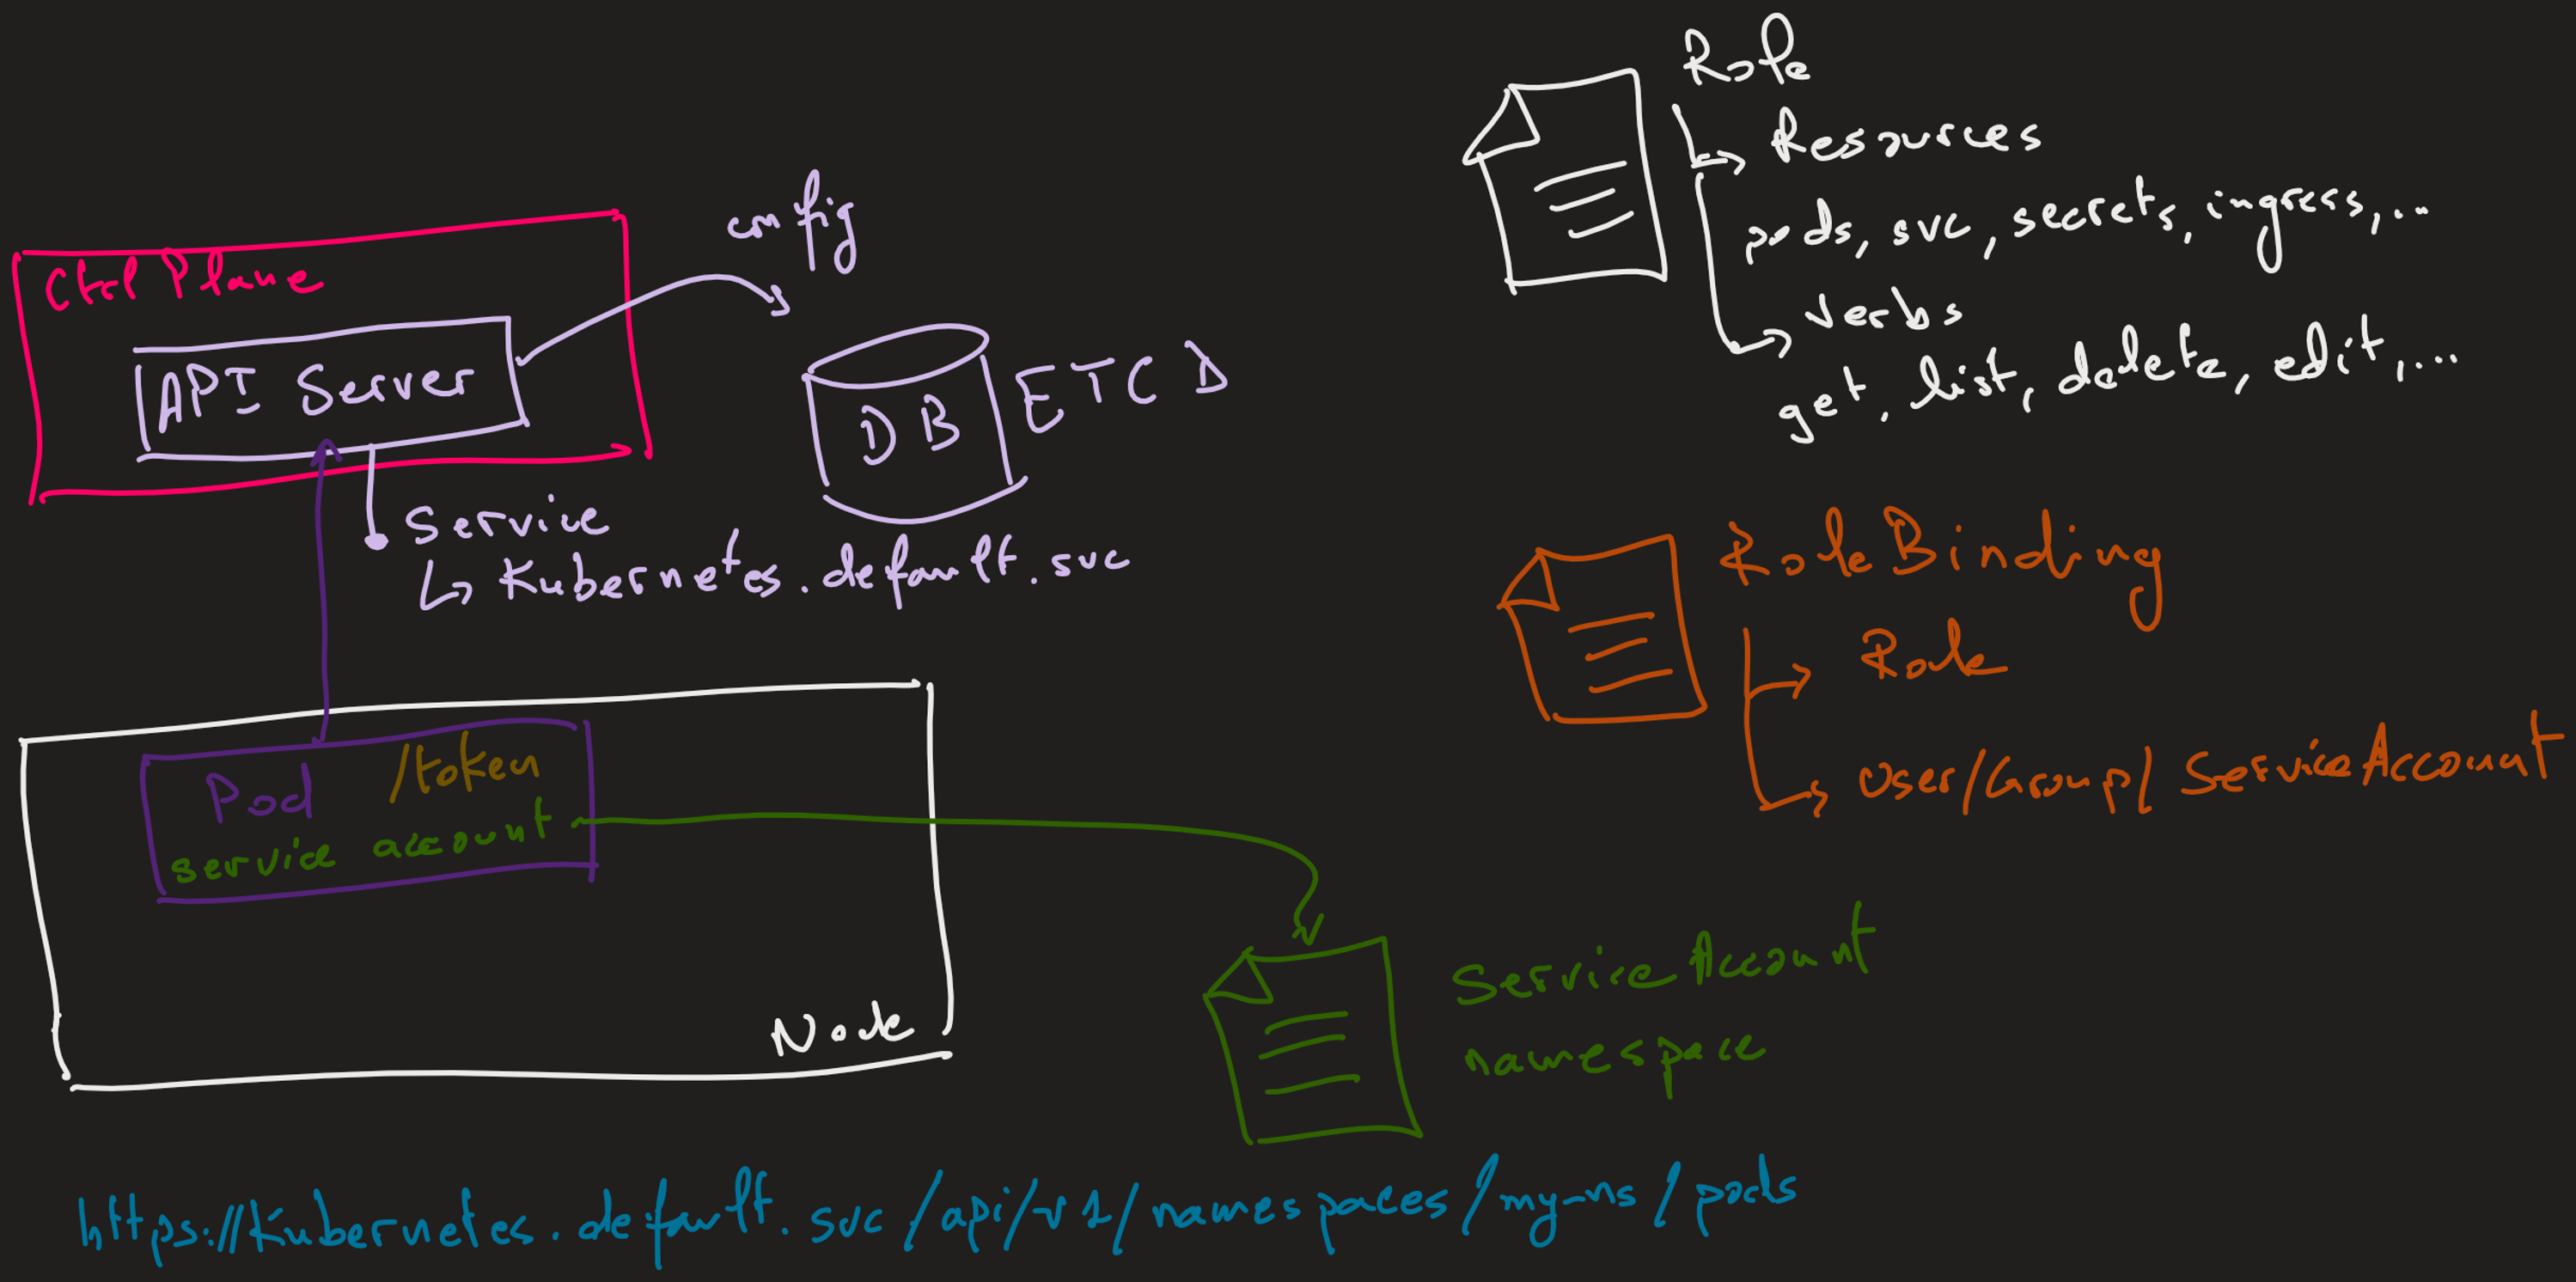 Ctrl Plane
API Server
config
DB
ETCD
Service
Kubernetes.default.svc
Pod
/token
service account
Node
Role
Resources
pods, svc, secrets, ingress,...
Verbs
get, list, delete, edit,...
RoleBinding
Role
User/Group/ServiceAccount
ServiceAccount
namespace
https://Kubernetes.default.svc/api/v1/namespaces/my-ns/pods